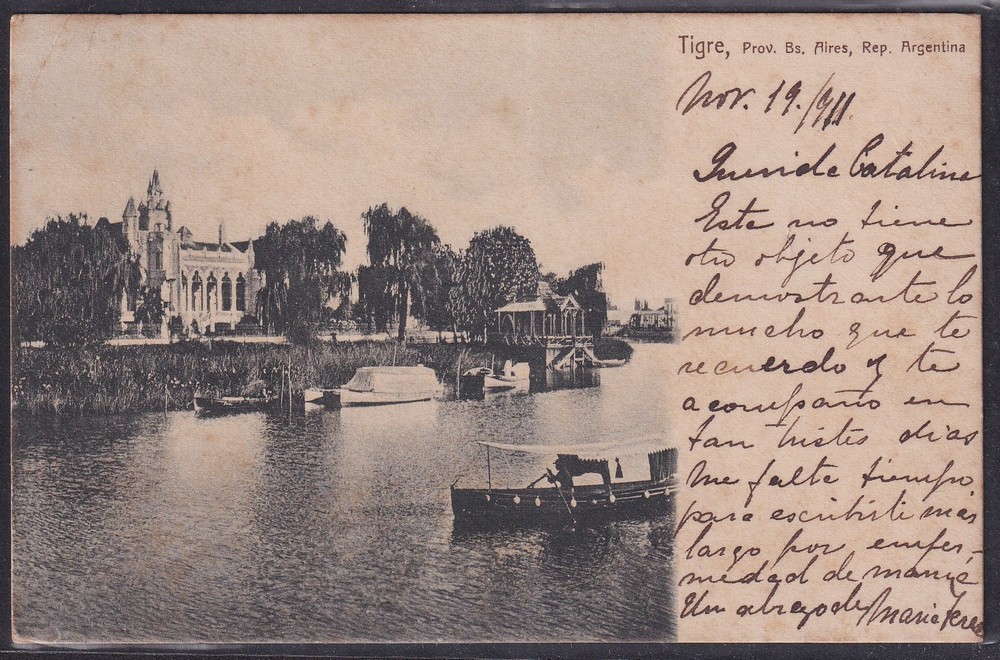 Tigre, Prov. Bs. Aires, Rep. Argentina
Nov. 19./911.
Querida Catalina
Este no tiene
otro objeto que
demostrarte lo
mucho que te
recuerdo y te
acompaño en
tan tristes dias
Me falta tiempo
para escribirte mas
largo por enfer-
medad de mamá
Un abrazo de Maria Teres